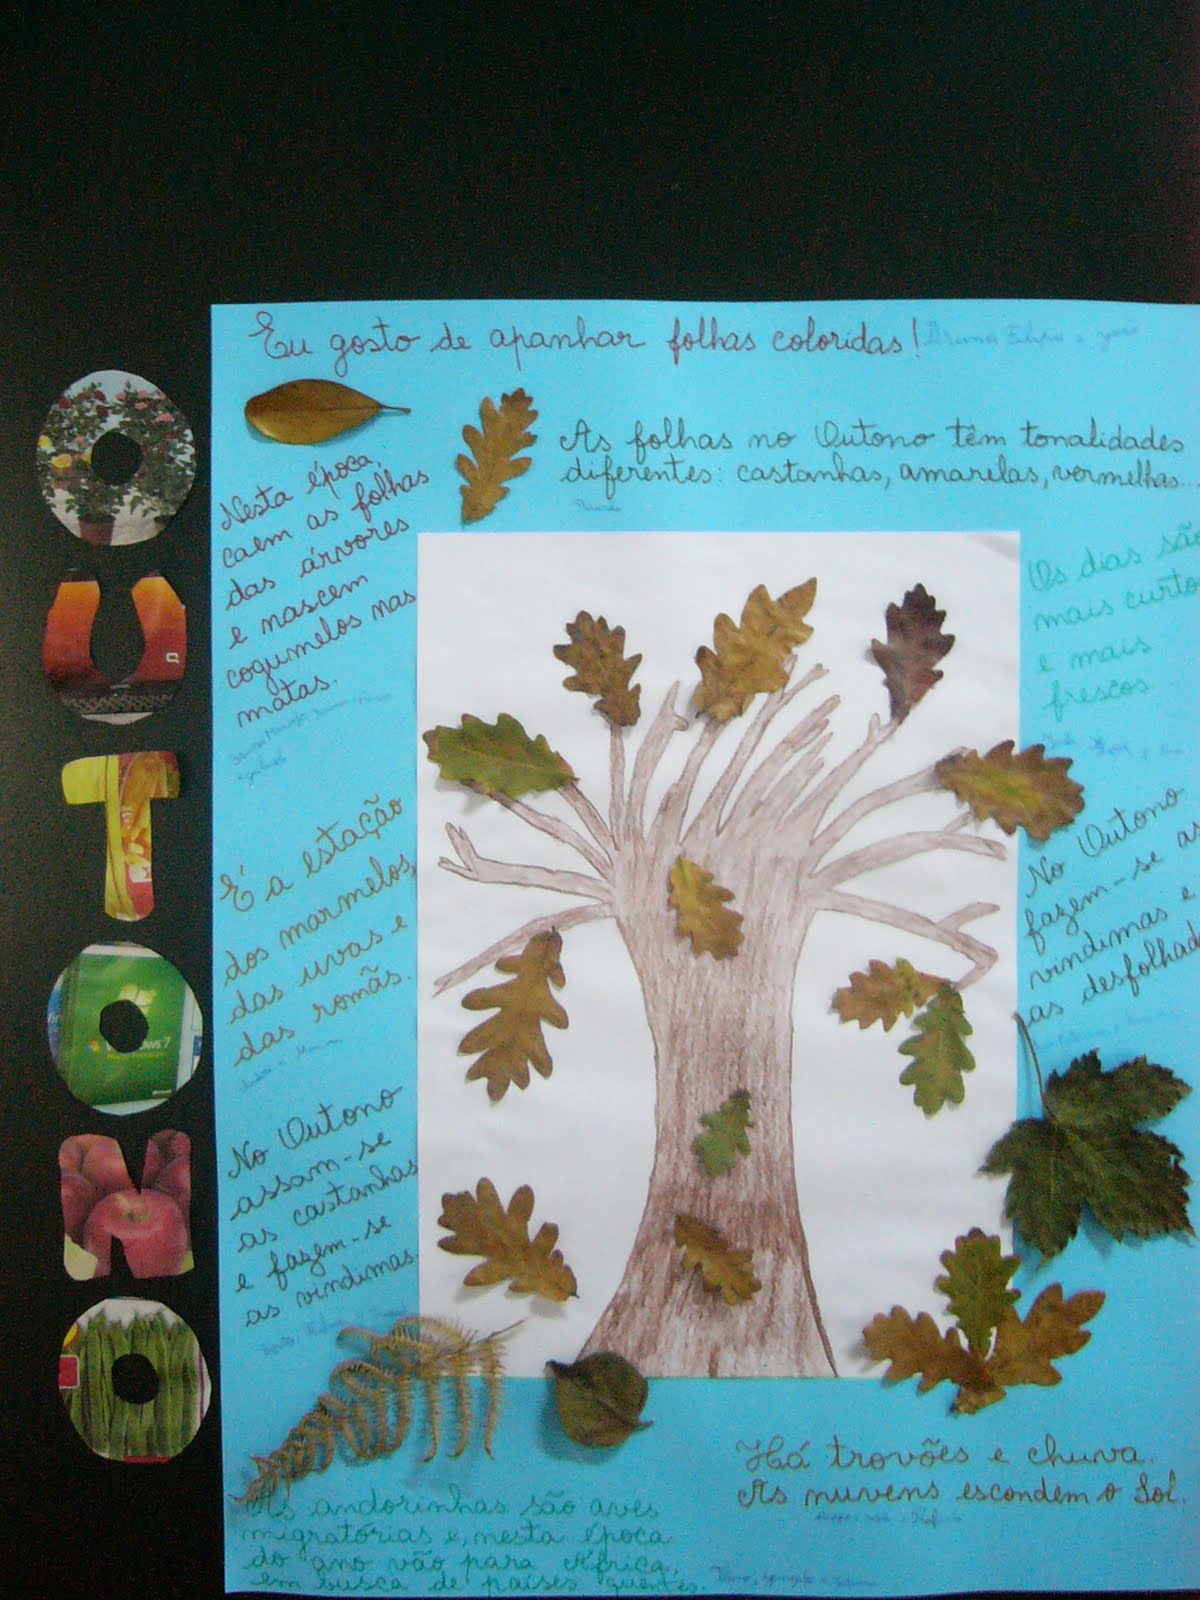 OUTONO
Eu gosto de apanhar folhas coloridas!
As folhas no Outono têm tonalidades
diferentes: castanhas, amarelas, vermelhas...
Nesta época,
caem as folhas
das árvores
e nascem
cogumelos nas
matas.
Os dias são
mais curto
e mais
frescos.
É a estação
dos marmelos,
das uvas e
das romãs.
No Outono
fazem-se as
vindimas e
as desfolhad
No Outono
assam-se
as castanhas
e fazem-se
as vindimas.
Há trovões e chuva.
As nuvens escondem o Sol.
As andorinhas são aves
migratórias e, nesta época
do ano vão para África,
em busca de países quentes.